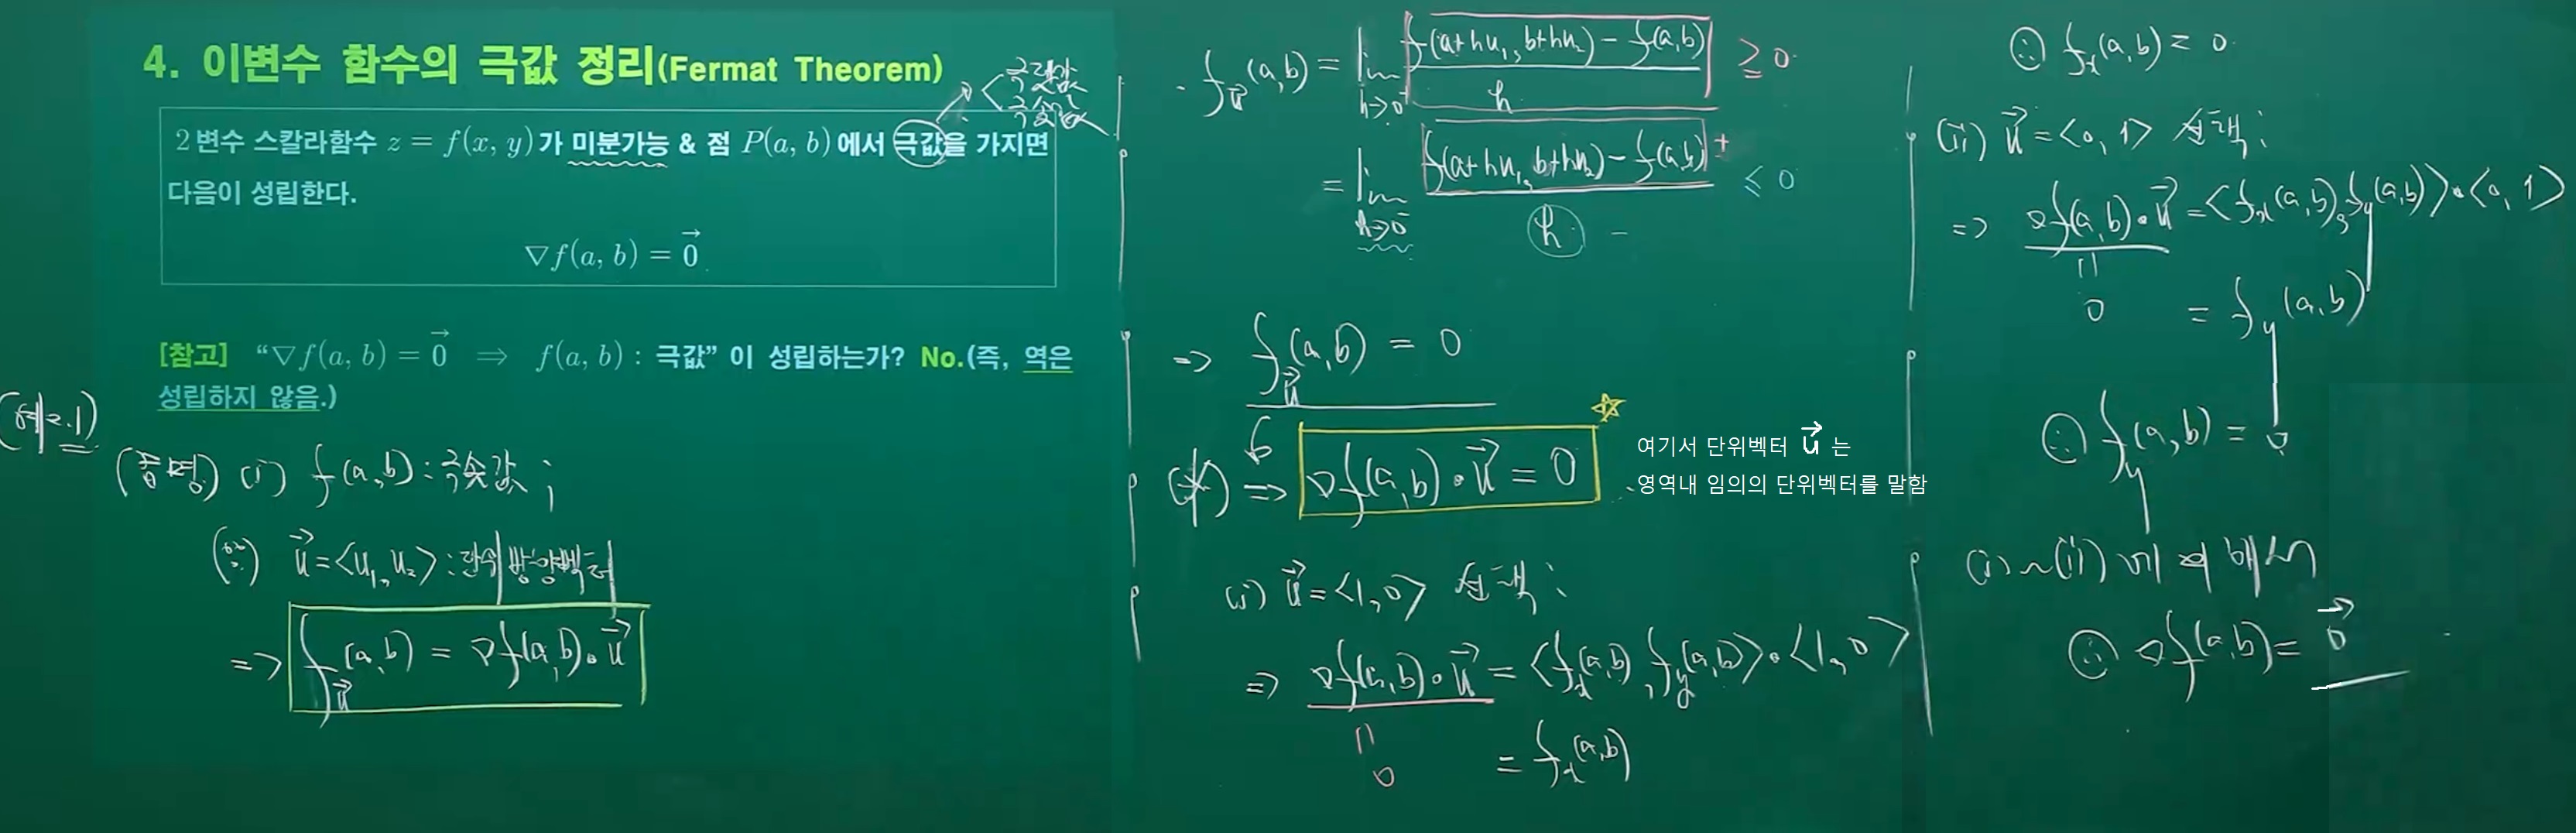 4. 이변수 함수의 극값 정리(Fermat Theorem)
극댓값
극솟값
2변수 스칼라함수 z = f(x, y)가 미분가능 & 점 P(a, b)에서 극값을 가지면
다음이 성립한다.
∇f(a, b) = 0⃗
[참고] “∇f(a, b) = 0⃗ ⇒ f(a, b) : 극값” 이 성립하는가? No.(즉, 역은
성립하지 않음.)
(증명) (i) f(a, b) : 극솟값 ;
u⃗ = <u₁, u₂> : 단위방향벡터
=> f_u⃗(a, b) = ∇f(a, b)·u⃗
f_u⃗(a, b) = lim h→0⁺ (f(a+hu₁, b+hu₂) − f(a, b)) / h ≥ 0
= lim h→0⁻ (f(a+hu₁, b+hu₂) − f(a, b)) + / h − ≤ 0
=> f_u⃗(a, b) = 0
(*) => ∇f(a, b)·u⃗ = 0 ☆
여기서 단위벡터 u⃗ 는
영역내 임의의 단위벡터를 말함
(i) u⃗ = <1, 0> 선택 ;
=> ∇f(a, b)·u⃗ = <f_x(a, b), f_y(a, b)>·<1, 0>
|| 0 = f_x(a, b)
∴ f_x(a, b) = 0
(ii) u⃗ = <0, 1> 선택 ;
=> ∇f(a, b)·u⃗ = <f_x(a, b), f_y(a, b)>·<0, 1>
|| 0 = f_y(a, b)
∴ f_y(a, b) = 0
(i)~(ii)에 의해서
∴ ∇f(a, b) = 0⃗